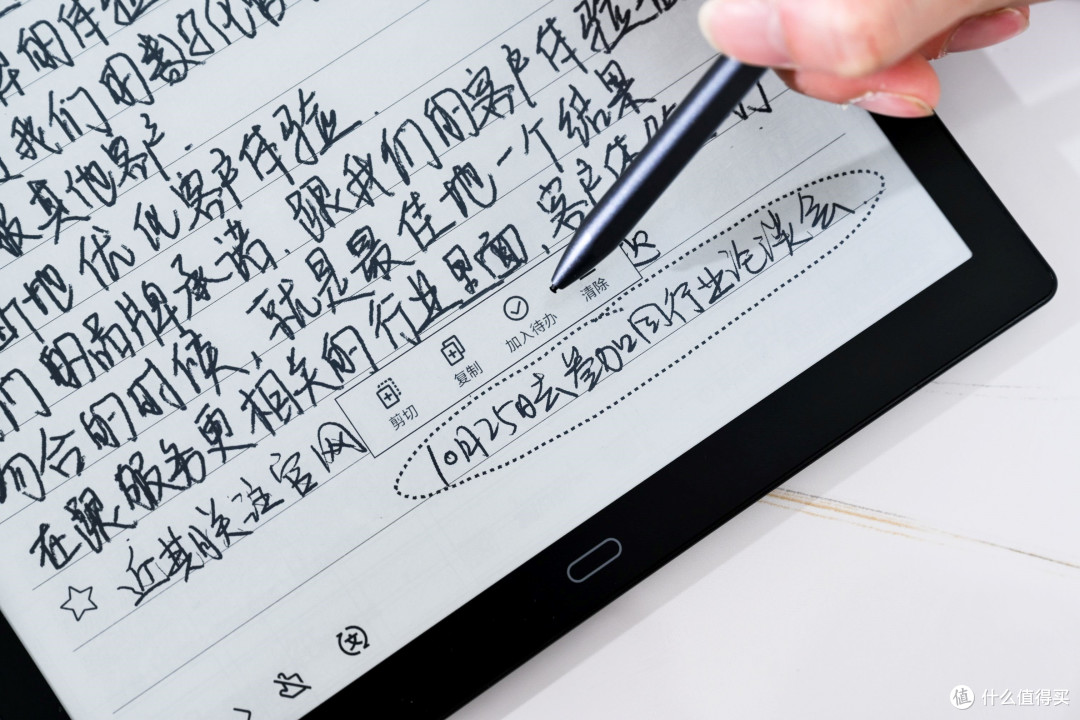 的体验
我们的数字化
及其他客户.
地优化客户体验.
们的品牌承诺.跟我们的客户体验
合的时候,就是最佳地一个结果
在跟服务更相关的行业里面,客户体验
☆近期关注官网
剪切 复制 加入待办 清除
10月25日去参加同行业洽谈会
值 什么值得买